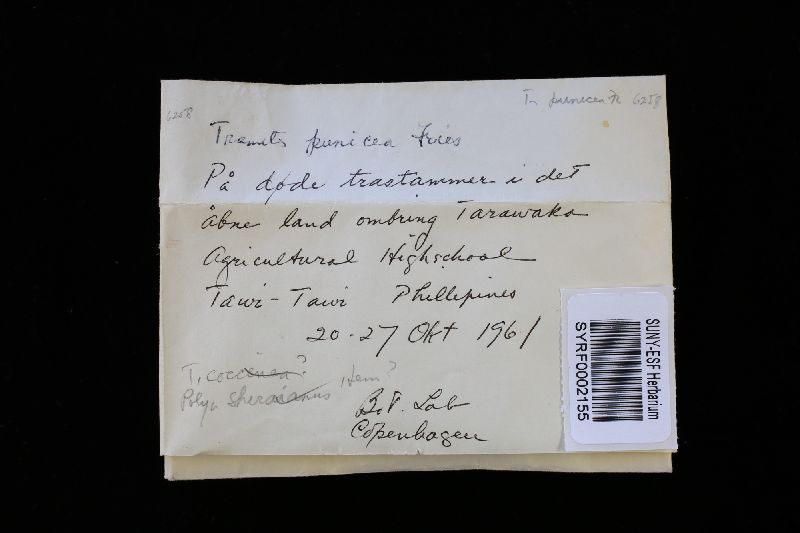 6258
T. punicea Fr 6258
Trametes punicea Fries
På døde træstammer i det
åbne land ombring Tarawaka
Agricultural Highschool
Tawi-Tawi Phillipines
20-27 Okt 1961
T. coccinea?
Polyp Henn?
Bot. Lab
Copenhagen
SUNY-ESF Herbarium
SYRF0002155